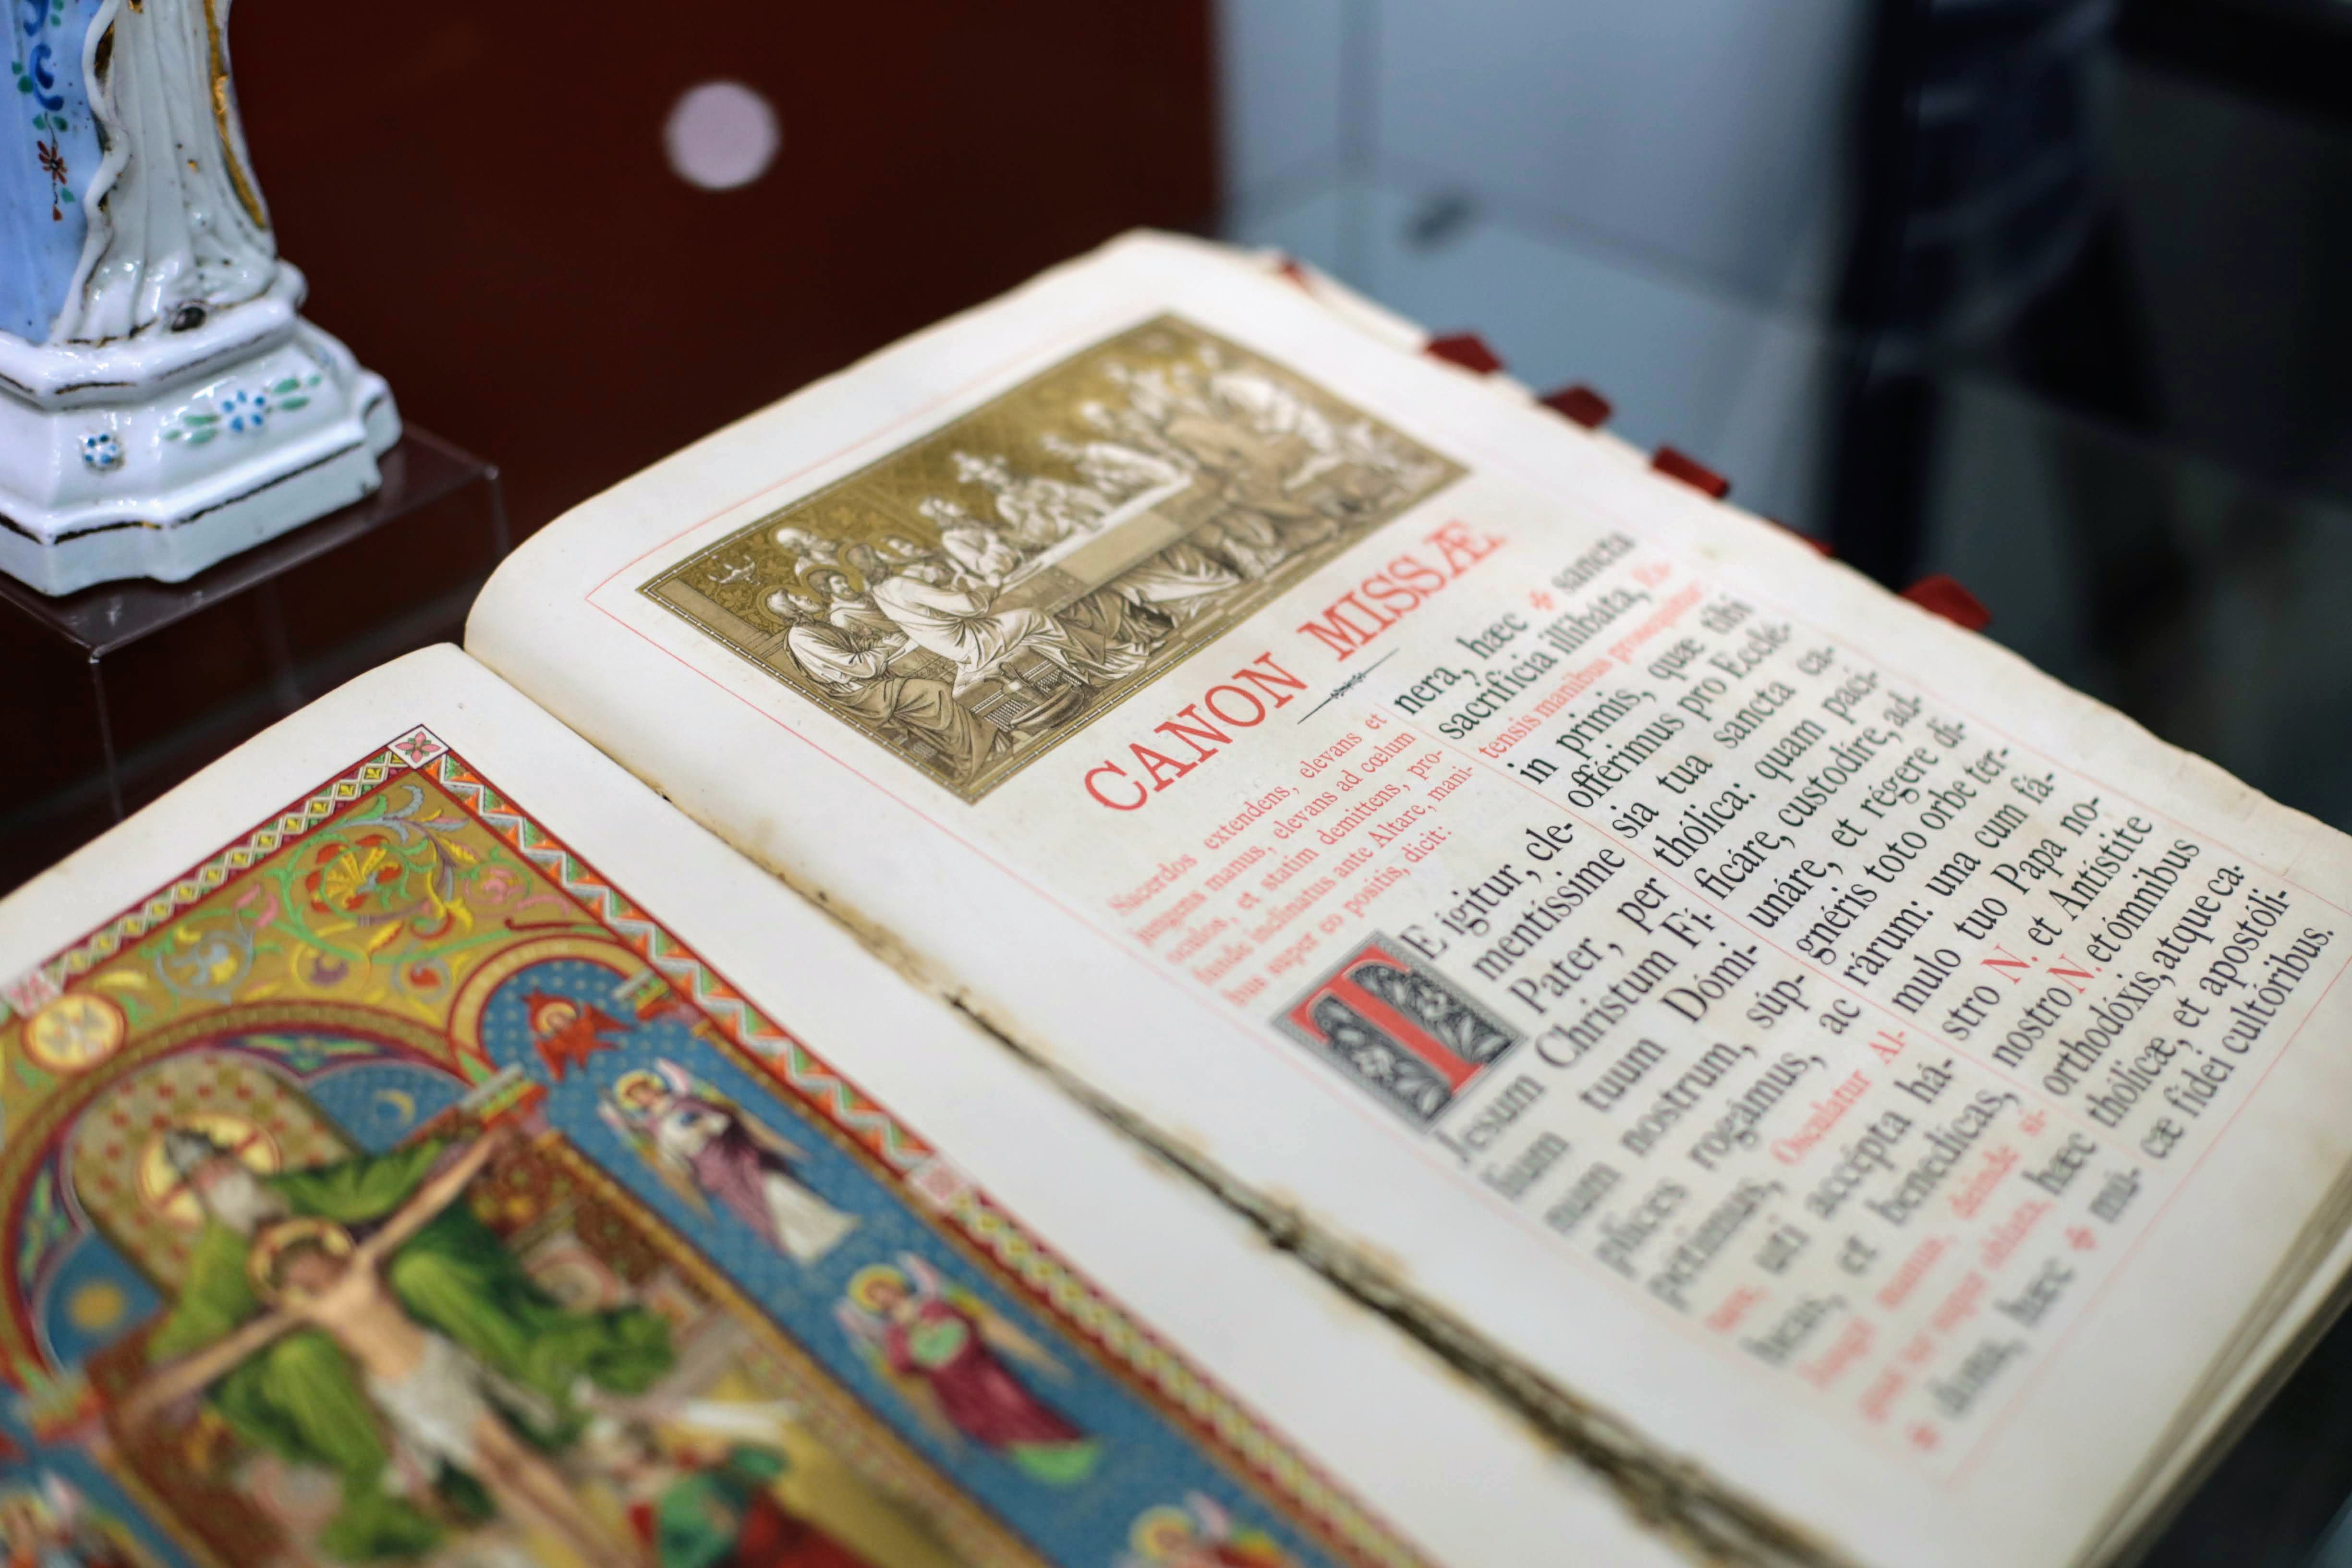 CANON MISSÆ
Sacerdos extendens, elevans et
jungens manus, elevans ad cœlum
oculos, et statim demittens, pro-
funde inclinatus ante Altare, mani-
bus super eo positis, dicit:
TE ígitur, cle-
mentíssime
Pater, per
Jesum Christum Fí-
lium tuum Dómi-
num nostrum, súp-
plices rogámus, ac
petimus, Osculatur Al-
tare, uti accépta há-
beas, et benedícas,
Jungit manus, deinde si-
gnat ter super oblata, hæc
✠ dona, hæc ✠ mú-
nera, hæc ✠ sancta
sacrifícia illibáta, Ex-
tensis manibus prosequitur:
in primis, quæ tibi
offérimus pro Ecclé-
sia tua sancta ca-
thólica: quam paci-
ficáre, custodíre, ad-
unáre, et régere di-
gnéris toto orbe ter-
rárum: una cum fá-
mulo tuo Papa no-
stro N. et Antístite
nostro N. et ómnibus
orthodóxis, atque ca-
thólicæ, et apostóli-
cæ fídei cultóribus.